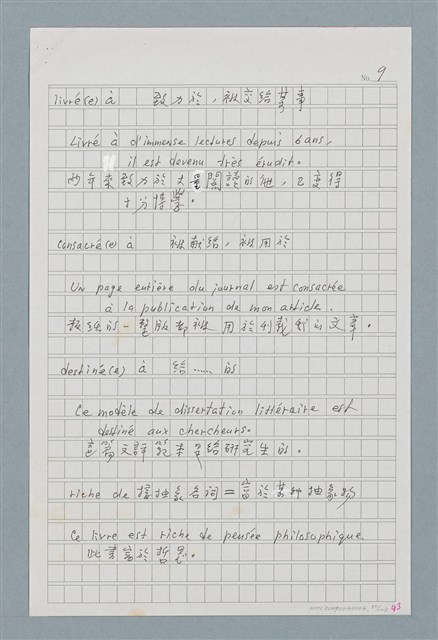 No. 9
livré(e) à 致力於，被交給某事
Livré à d'immense lectures depuis 6 ans,
il est devenu très érudit.
年來致力於大量閱讀的他，已變得
十分博學。
consacré(e) à 被献給，被用於
Un page entière du journal est consacrée
à la publication de mon article.
報紙的一整版都被用於刊載我的文章。
destiné(e) à 給……的
Ce modèle de dissertation littéraire est
destiné aux chercheurs.
這篇文評範本是給研究生的。
riche de 接抽象名词＝富於某种抽象物
Ce livre est riche de pensée philosophique.
此書富於哲思。
43